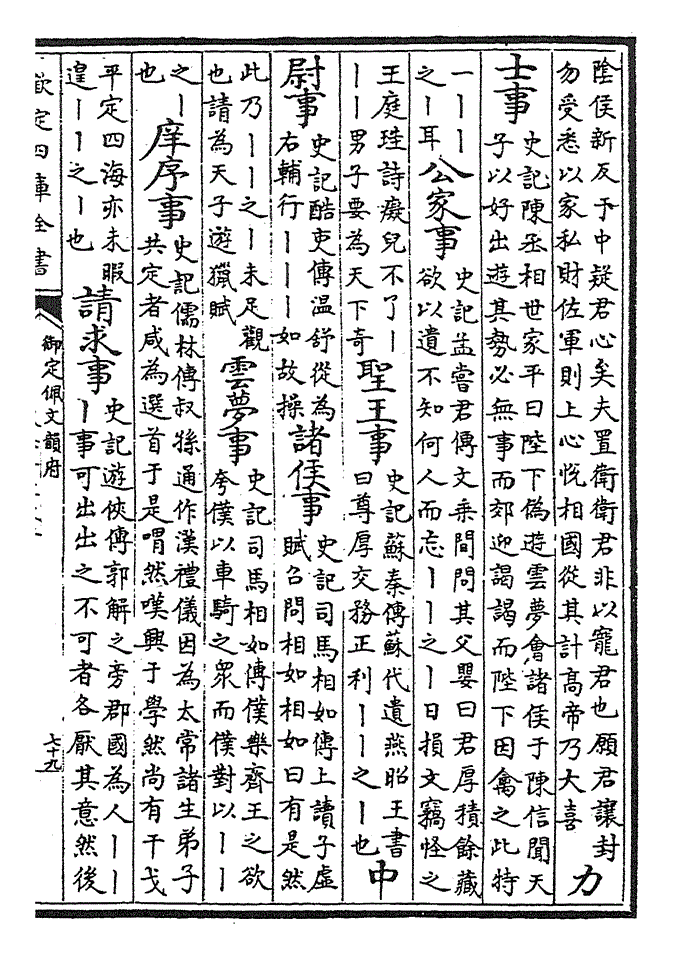 陰侯新反于中疑君心矣夫置衛衛君非以寵君也願君讓封
勿受悉以家私財佐軍則上心悅相國從其計髙帝乃大喜
力
士事
史記陳丞相世家平曰陛下偽遊雲夢會諸侯于陳信聞天
子以好出遊其勢必無事而郊迎謁謁而陛下因禽之此特
一丨丨
之丨耳
公家事
史記孟嘗君傳文乗間問其父嬰曰君厚積餘藏
欲以遺不知何人而忘丨丨之丨日損文竊怪之
王庭珪詩癡兒不了丨
丨丨男子要為天下奇
聖王事
史記蘇秦傳蘇代遺燕昭王書
曰尊厚交務正利丨丨之丨也
中
尉事
史記酷吏傳温舒從為
右輔行丨丨丨如故操
諸侯事
史記司馬相如傳上讀子虛
賦召問相如相如曰有是然
此乃丨丨之丨未足觀
也請為天子遊獵賦
雲夢事
史記司馬相如傳僕樂齊王之欲
夸僕以車騎之衆而僕對以丨丨
之丨
也
庠序事
史記儒林傳叔孫通作漢禮儀因為太常諸生弟子
共定者咸為選首于是喟然嘆興于學然尚有干戈
平定四海亦未暇
遑丨丨之丨也
請求事
史記遊俠傳郭解之旁郡國為人丨丨
丨事可出出之不可者各厭其意然後
欽定四庫全書
御定佩文韻府
七十九